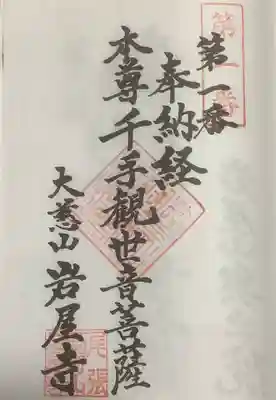 第一番
奉納経
本尊千手観世音菩薩
大慈山岩屋寺
第一番
尾張